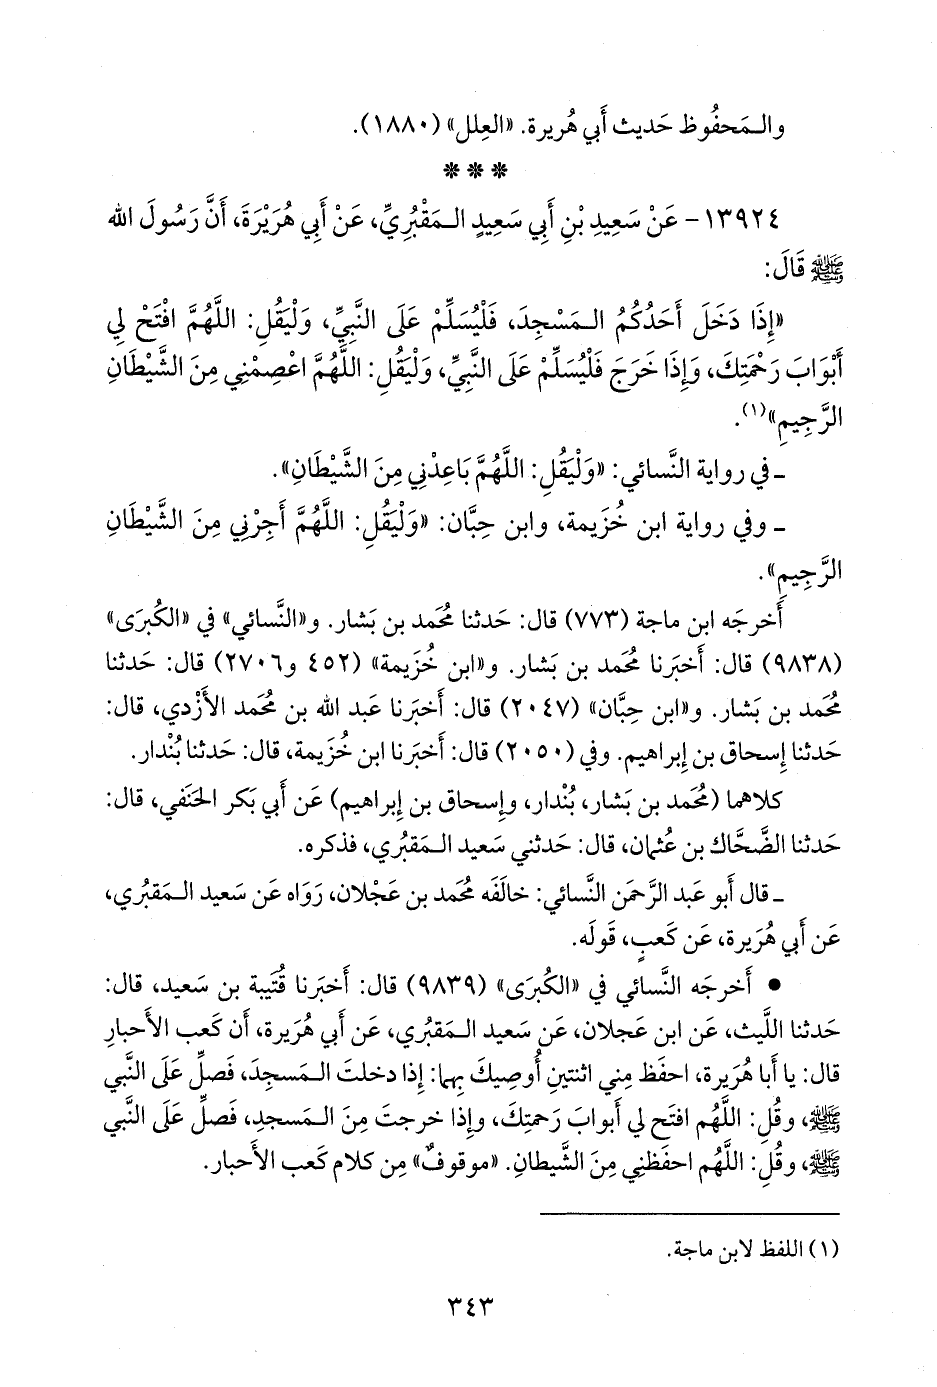 والـمَحفُوظ حَديث أَبي هُريرة. «العِلل» (١٨٨٠).
❋ ❋ ❋
١٣٩٢٤- عَنْ سَعِيدِ بْنِ أَبِي سَعِيدٍ الـمَقْبُرِيِّ، عَنْ أَبِي هُرَيْرَةَ، أَنَّ رَسُولَ الله
ﷺ قَالَ:
«إِذَا دَخَلَ أَحَدُكُمُ الـمَسْجِدَ، فَلْيُسَلِّمْ عَلَى النَّبِيِّ، وَلْيَقُلِ: اللَّهُمَّ افْتَحْ لِي
أَبْوَابَ رَحْمَتِكَ، وَإِذَا خَرَجَ فَلْيُسَلِّمْ عَلَى النَّبِيِّ، وَلْيَقُلِ: اللَّهُمَّ اعْصِمْنِي مِنَ الشَّيْطَانِ
الرَّجِيمِ»(١).
ـ في رواية النَّسائي: «وَلْيَقُلِ: اللَّهُمَّ بَاعِدْنِي مِنَ الشَّيْطَانِ».
ـ وفي رواية ابن خُزَيمة، وابن حِبَّان: «وَلْيَقُلِ: اللَّهُمَّ أَجِرْنِي مِنَ الشَّيْطَانِ
الرَّجِيمِ».
أَخرجَه ابن ماجة (٧٧٣) قال: حَدثنا مُحَمد بن بَشار. و«النَّسائي» في «الكُبرَى»
(٩٨٣٨) قال: أَخبَرنا مُحَمد بن بَشار. و«ابن خُزيمة» (٤٥٢ و٢٧٠٦) قال: حَدثنا
مُحَمد بن بَشار. و«ابن حِبَّان» (٢٠٤٧) قال: أَخبَرنا عَبد الله بن مُحَمد الأَزْدي، قال:
حَدثنا إِسحاق بن إِبراهيم. وفي (٢٠٥٠) قال: أَخبَرنا ابن خُزيمة، قال: حَدثنا بُنْدار.
كلاهما (مُحَمد بن بَشار، بُنْدار، وإِسحاق بن إِبراهيم) عَن أَبي بَكر الحَنَفي، قال:
حَدثنا الضَّحَّاك بن عُثمان، قال: حَدثني سَعيد الـمَقبُري، فذكره.
ـ قال أَبو عَبد الرَّحمَن النَّسائي: خالَفَه مُحَمد بن عَجْلان، رَوَاه عَن سَعيد الـمَقبُري،
عَن أَبي هُرَيرة، عَن كَعبٍ، قَولَه.
• أَخرجَه النَّسائي في «الكُبرَى» (٩٨٣٩) قال: أَخبَرنا قُتَيبة بن سَعيد، قال:
حَدثنا اللَّيث، عَن ابن عَجلان، عَن سَعيد الـمَقبُري، عَن أَبي هُرَيرة، أَن كَعب الأَحبارِ
قال: يا أَبا هُرَيرة، احفَظ مِني اثنتينِ أُوصِيكَ بِهما: إِذا دخلتَ الـمَسجِدَ، فَصلِّ عَلى النَّبي
ﷺ، وقُلِ: اللَّهُم افتَح لي أَبوابَ رَحمتِكَ، وإِذا خرجتَ مِنَ الـمَسجدِ، فَصلِّ عَلَى النَّبي
ﷺ، وقُلِ: اللَّهُم احفَظنِي مِنَ الشَّيطانِ. «موقوفٌ» مِن كلام كَعب الأَحبار.
(١) اللفظ لابن ماجة.
٣٤٣